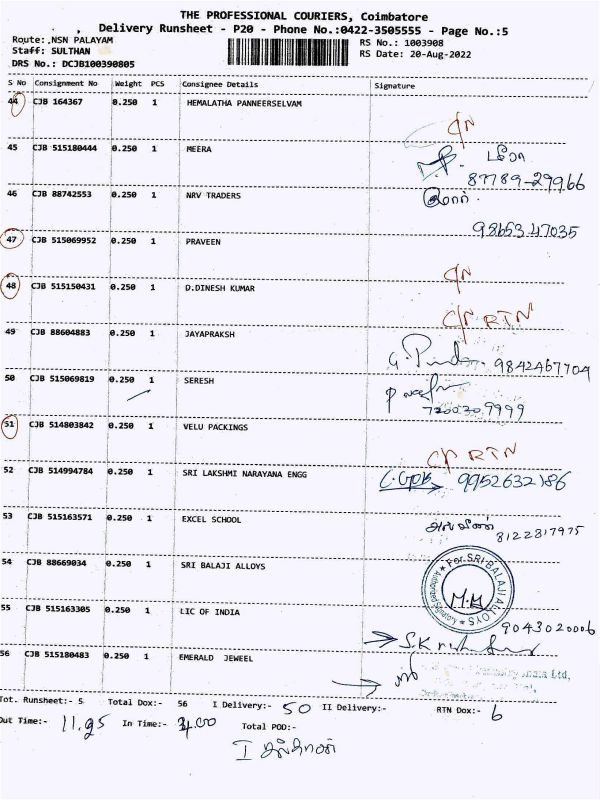 THE PROFESSIONAL COURIERS, Coimbatore
, Delivery Runsheet - P20 - Phone No.:0422-3505555 - Page No.:5
Route: .NSN PALAYAM
RS No.: 1003908
Staff: SULTHAN
RS Date: 20-Aug-2022
DRS No.: DCJB100390805
S No Consignment No Weight PCS Consignee Details Signature
44 CJB 164367 0.250 1 HEMALATHA PANNEERSELVAM
C/N
45 CJB 515180444 0.250 1 MEERA
மீரா
87789-29966
46 CJB 88742553 0.250 1 NRV TRADERS
98653 47035
47 CJB 515069952 0.250 1 PRAVEEN
C/N
48 CJB 515150431 0.250 1 D.DINESH KUMAR
C/N RTN
49 CJB 88604883 0.250 1 JAYAPRAKSH
9842467704
50 CJB 515069819 0.250 1 SERESH
9999
51 CJB 514803842 0.250 1 VELU PACKINGS
RTN
52 CJB 514994784 0.250 1 SRI LAKSHMI NARAYANA ENGG
9952632186
53 CJB 515163571 0.250 1 EXCEL SCHOOL
8122817975
54 CJB 88669034 0.250 1 SRI BALAJI ALLOYS
For SRI BALAJI ALLOYS
Authorised Signatory
55 CJB 515163305 0.250 1 LIC OF INDIA
9043020006
56 CJB 515180483 0.250 1 EMERALD JEWEEL
India Ltd,
Tot. Runsheet:- 5 Total Dox:- 56 I Delivery:- 50 II Delivery:- RTN Dox:- 6
Out Time:- 11.25 In Time:- 4.00 Total POD:-
I